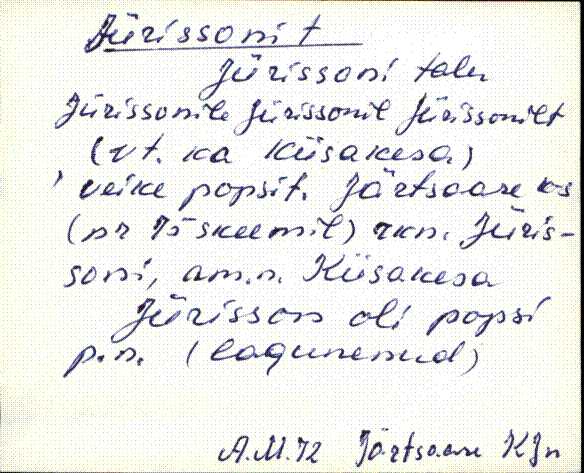 Jürissoni t
Jürissoni talu
Jürissonile Jürissonil Jürissonilt
(vt. ka Kiisakesa)
veike popsit. Järtsaare ks
(nr 15 skeemil) rkn. Jüris-
soni, am.n. Kiisakesa
Jürisson oli popsi
p.n. (lagunenud)
A.M.72 Järtsaare KJn